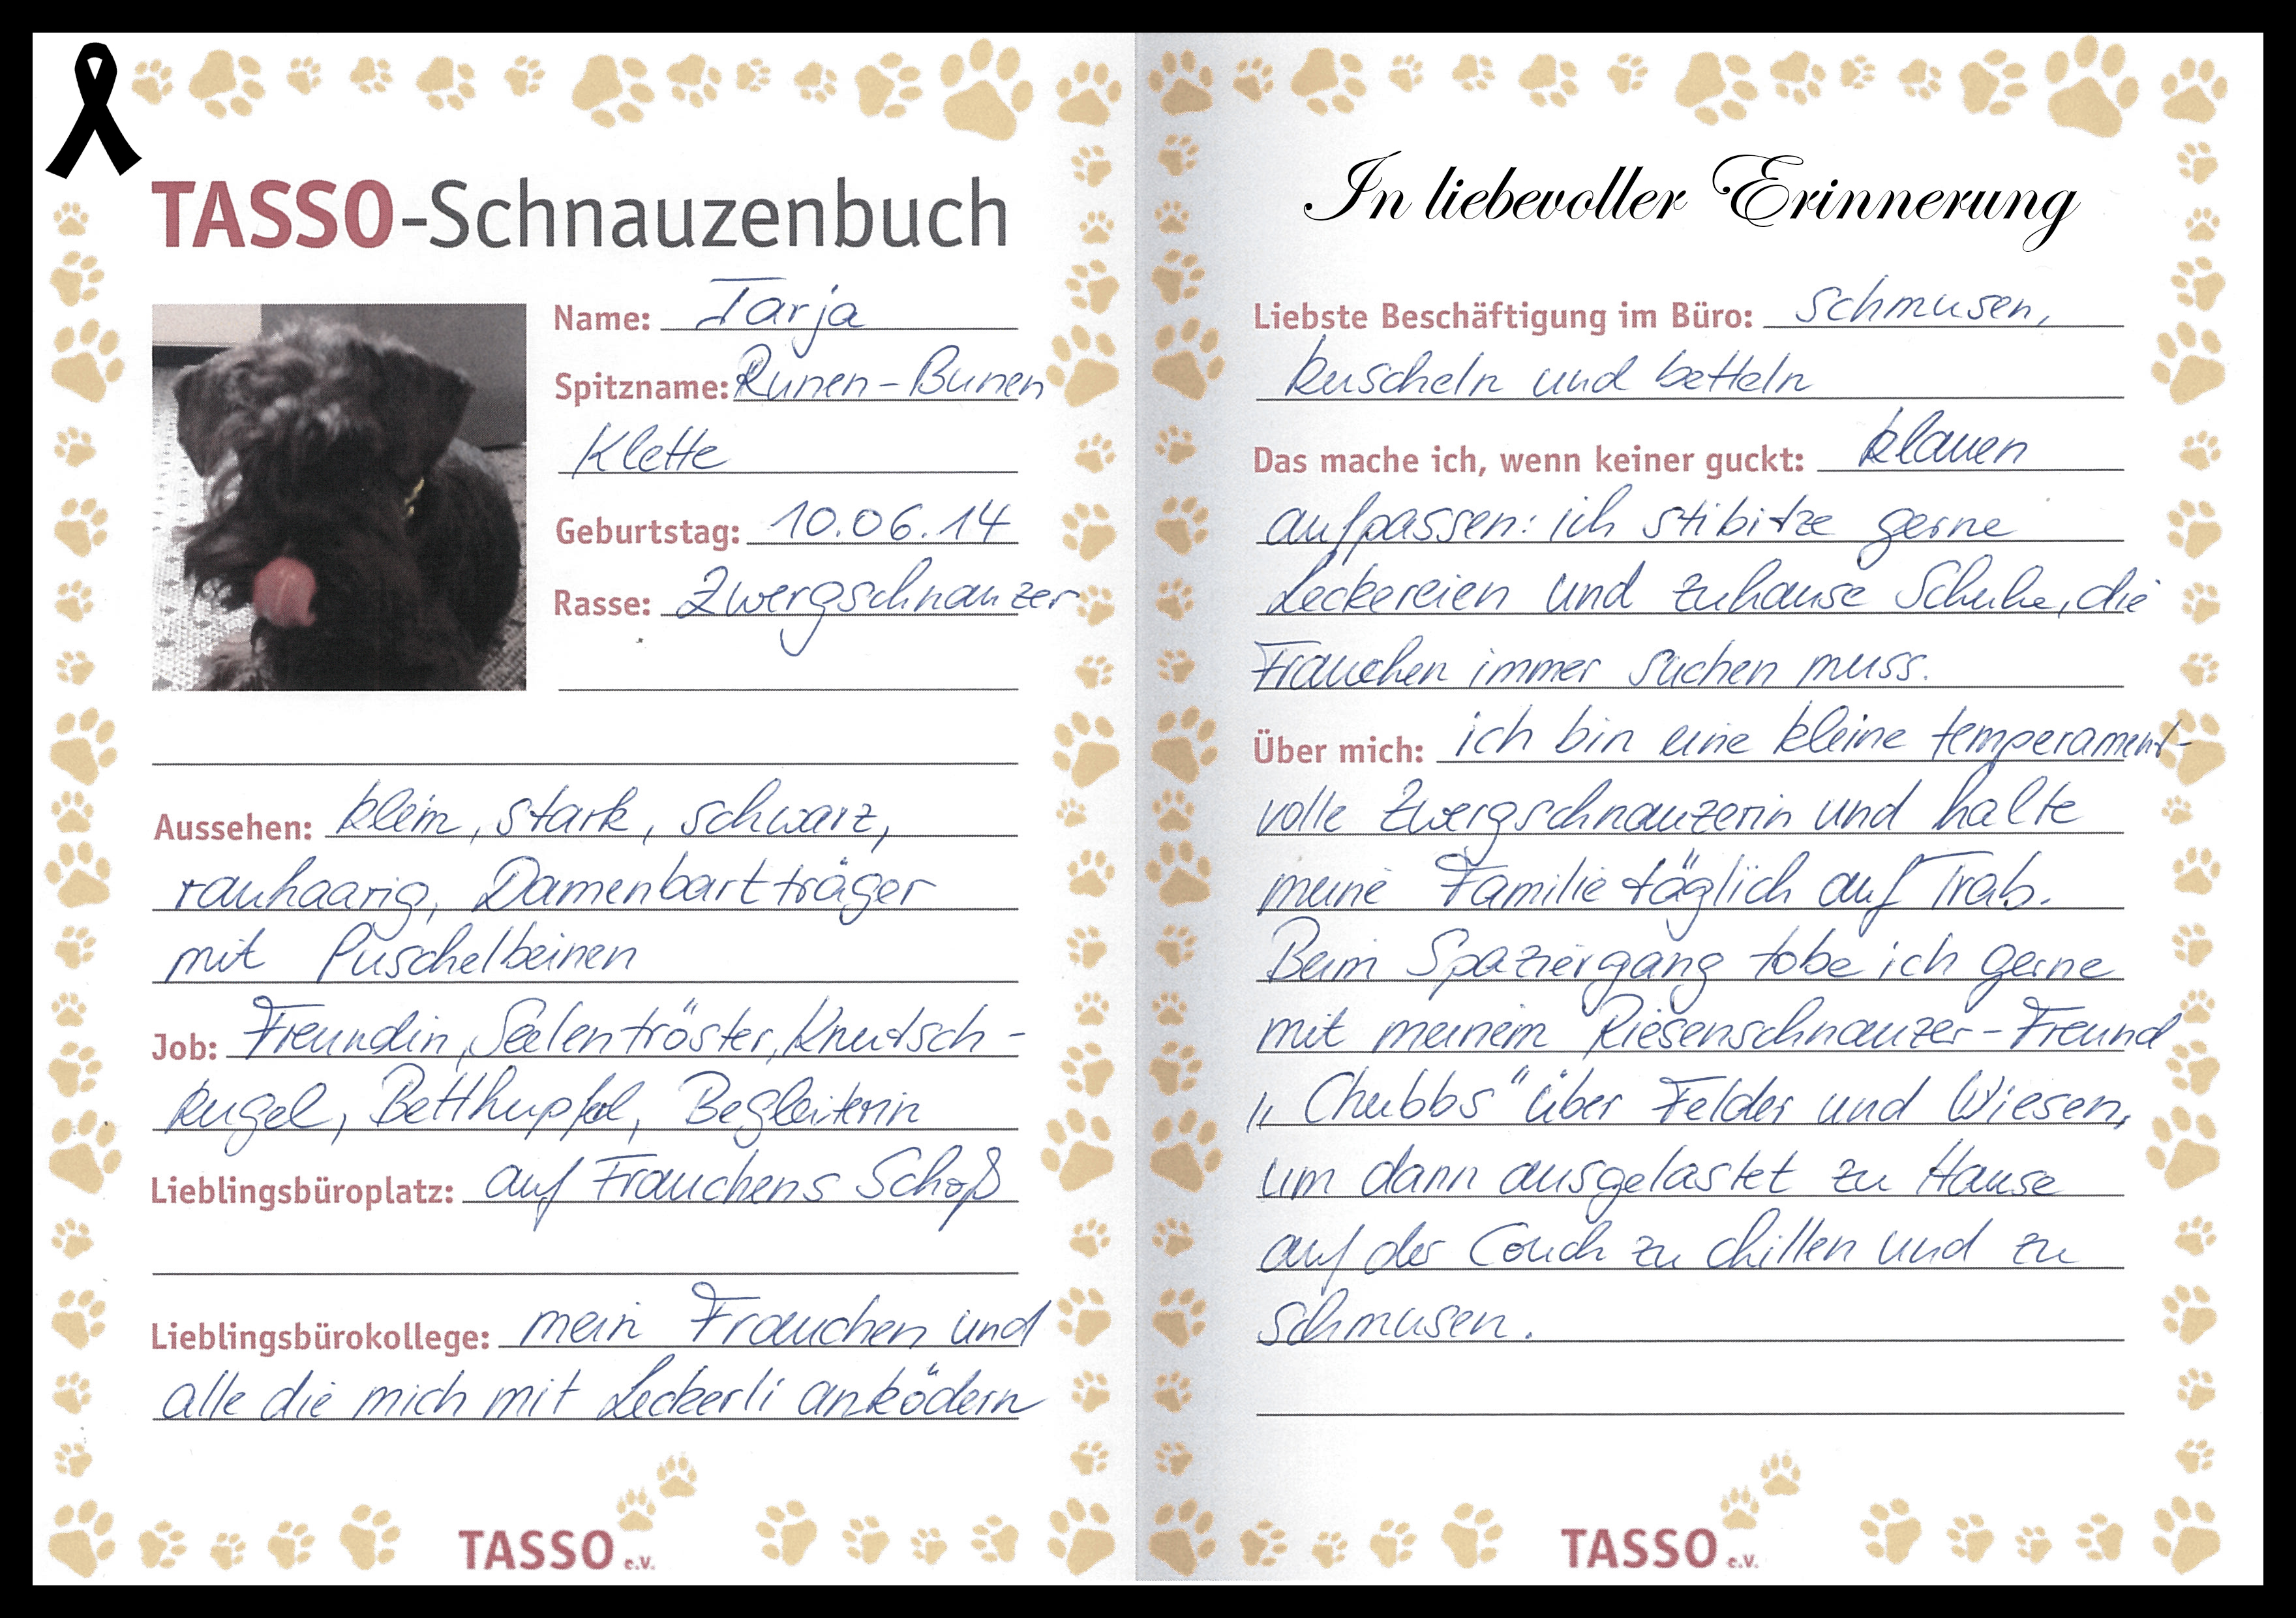 TASSO-Schnauzenbuch
Name: Tarja
Spitzname: Runen-Bunen
Klette
Geburtstag: 10.06.14
Rasse: Zwergschnauzer
Aussehen: klein, stark, schwarz,
rauhaarig, Damenbartträger
mit Puschelbeinen
Job: Freundin, Seelentröster, Knutsch-
kugel, Betthupferl, Begleiterin
Lieblingsbüroplatz: auf Frauchens Schoß
Lieblingsbürokollege: mein Frauchen und
alle die mich mit Leckerli anködern
TASSO e.V.
In liebevoller Erinnerung
Liebste Beschäftigung im Büro: schmusen,
kuscheln und betteln
Das mache ich, wenn keiner guckt: klauen
aufpassen: ich stibitze gerne
Leckereien und zuhause Schuhe, die
Frauchen immer suchen muss.
Über mich: ich bin eine kleine temperament-
volle Zwergschnauzerin und halte
meine Familie täglich auf Trab.
Beim Spaziergang tobe ich gerne
mit meinem Riesenschnauzer-Freund
„Chubbs" über Felder und Wiesen,
um dann ausgelastet zu Hause
auf der Couch zu chillen und zu
schmusen.
TASSO e.V.